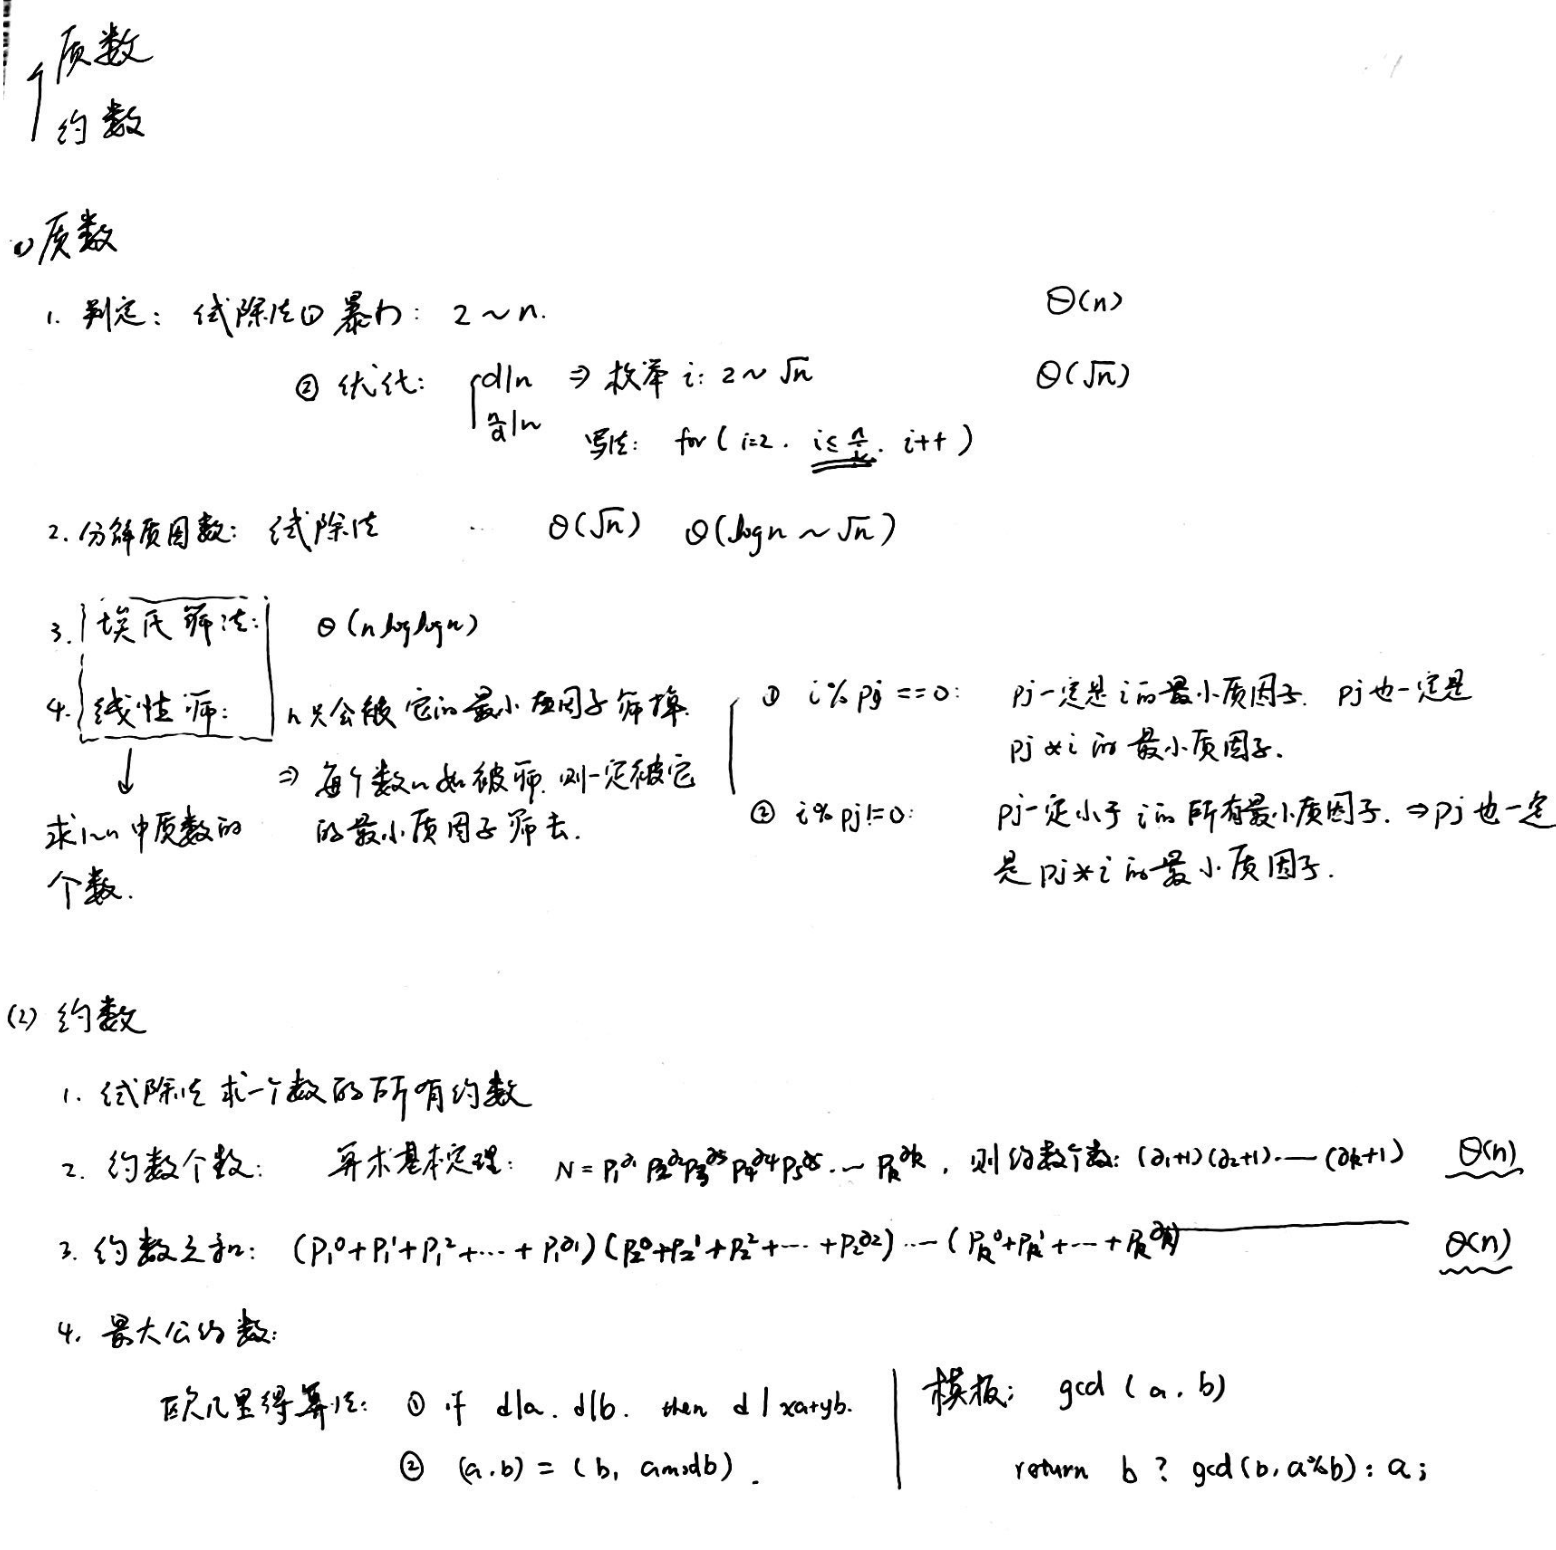 质数
约数
(1) 质数
1. 判定: 试除法 ① 暴力: 2~n. Θ(n)
② 优化: d|n ⇒ 枚举 i: 2~√n Θ(√n)
n/d|n 写法: for ( i=2. i≤n/i. i++ )
2. 分解质因数: 试除法 Θ(√n) Θ(logn ~ √n)
3. 埃氏筛法: Θ(nloglogn)
4. 线性筛: n只会被它的最小质因子筛掉.
⇒ 每个数n如被筛. 则一定被它
的最小质因子筛去.
↓
求1~n中质数的
个数.
① i%pj==0: pj一定是i的最小质因子. pj也一定是
pj*i的最小质因子.
② i%pj!=0: pj一定小于i的所有最小质因子. ⇒pj也一定
是pj*i的最小质因子.
(2) 约数
1. 试除法求一个数的所有约数
2. 约数个数: 算术基本定理: N=P₁^∂₁P₂^∂₂P₃^∂₃P₄^∂₄P₅^∂₅...Pₖ^∂ₖ, 则约数个数: (∂₁+1)(∂₂+1)...(∂ₖ+1) Θ(n)
3. 约数之和: (P₁⁰+P₁¹+P₁²+...+P₁^∂₁)(P₂⁰+P₂¹+P₂²+...+P₂^∂₂)...(Pₖ⁰+Pₖ¹+...+Pₖ^∂ₖ) Θ(n)
4. 最大公约数:
欧几里得算法: ① if d|a. d|b. then d|xa+yb.
② (a.b) = (b, amodb).
模板: gcd (a. b)
return b ? gcd(b, a%b) : a;